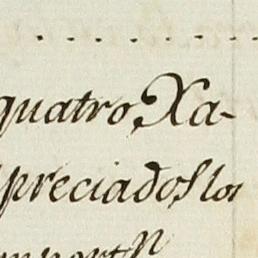 quatro, Xa-
preciados los